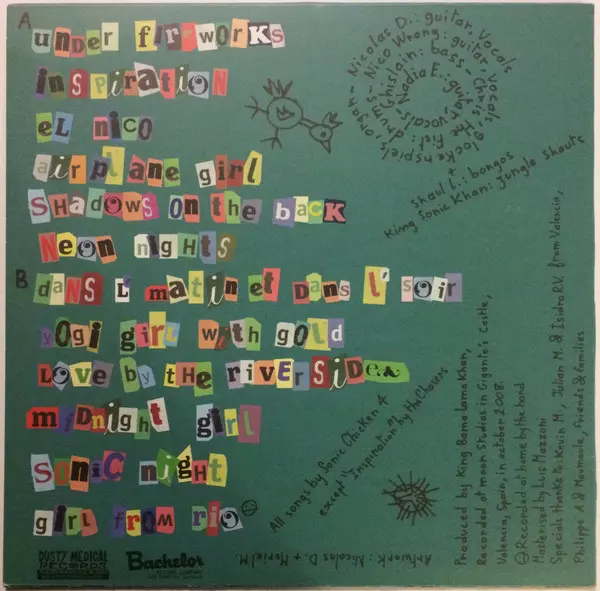 A
under fireworks
inspiration
el nico
airplane girl
Shadows on the back
Neon nights
B
dans l' matin et dans l' soir
yogi girl with gold
Love by the riverside
midnight girl
Sonic night
girl from rio
Nicolas D.: guitar, vocals, Glockenspiel, organ -
Nico Wrong: guitar, vocals -
Chris the fist: drums -
Ghislain: bass -
Nadia F.: guitar, vocals
+
Shaul L.: bongos
King Sonic Khan: jungle shouts
All songs by Sonic Chicken 4
except "Inspiration" by the Chosers
Produced by King Bama Lama Khan,
Recorded at moon Studios in Gigante's Castle,
Valencia, Spain, in october 2008.
Recorded at home by the band
Masterised by Luis Mazzoni
Specials thanks to: Kevin M., Julian M. & Isidro R.V. from Valencia,
Philippe A & Meumeule, friends & families
Artwork: Nicolas D. + Muriel M.
DUSTY MEDICAL
RECORDS
Bachelor